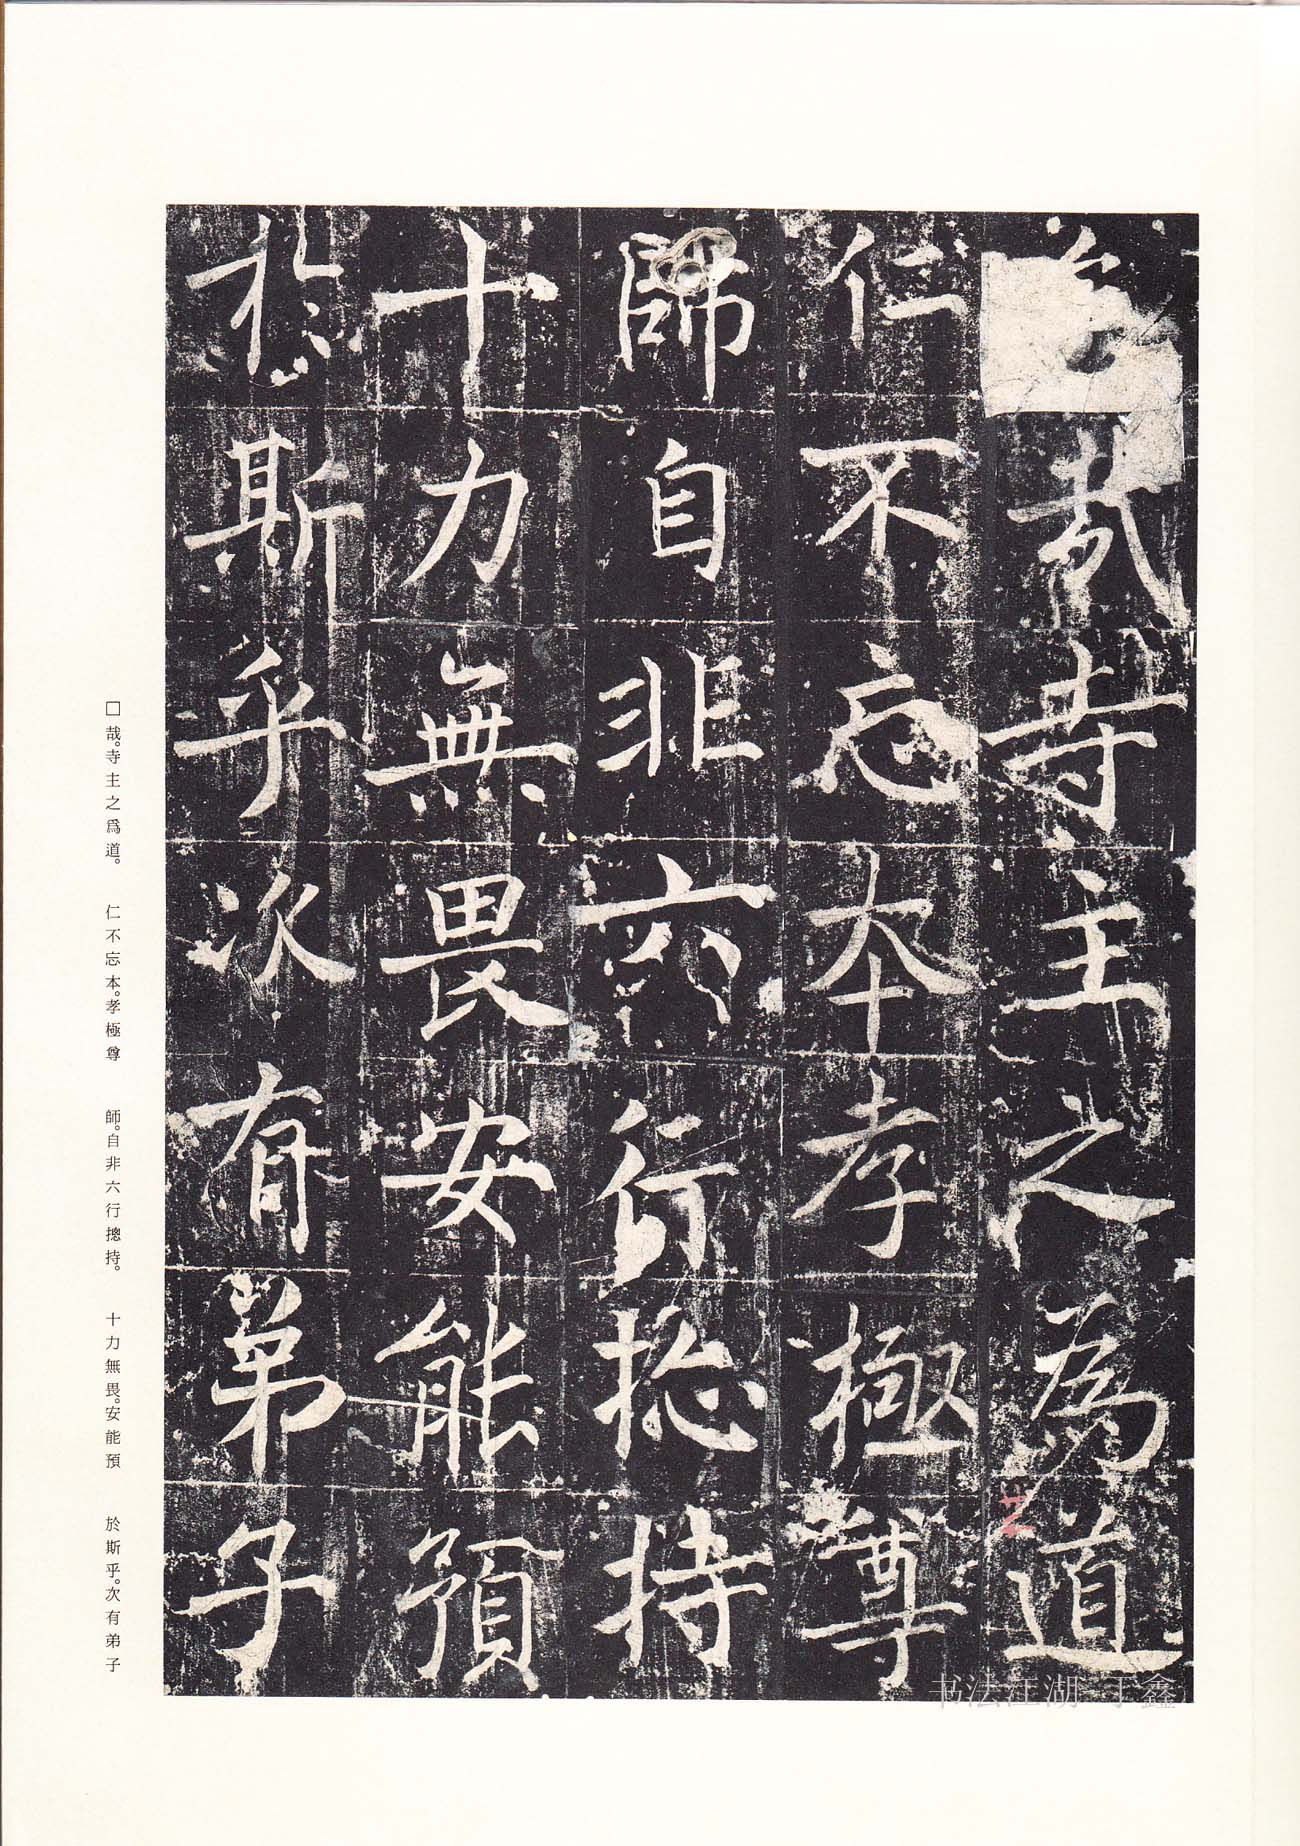 哉寺主之為道
仁不忘本孝極尊
師自非六行揔持
十力無畏安能預
於斯乎次有弟子
□哉。寺主之爲道。 仁不忘本。孝極尊 師。自非六行摠持。 十力無畏。安能預 於斯乎。次有弟子
书法江湖-丁鑫